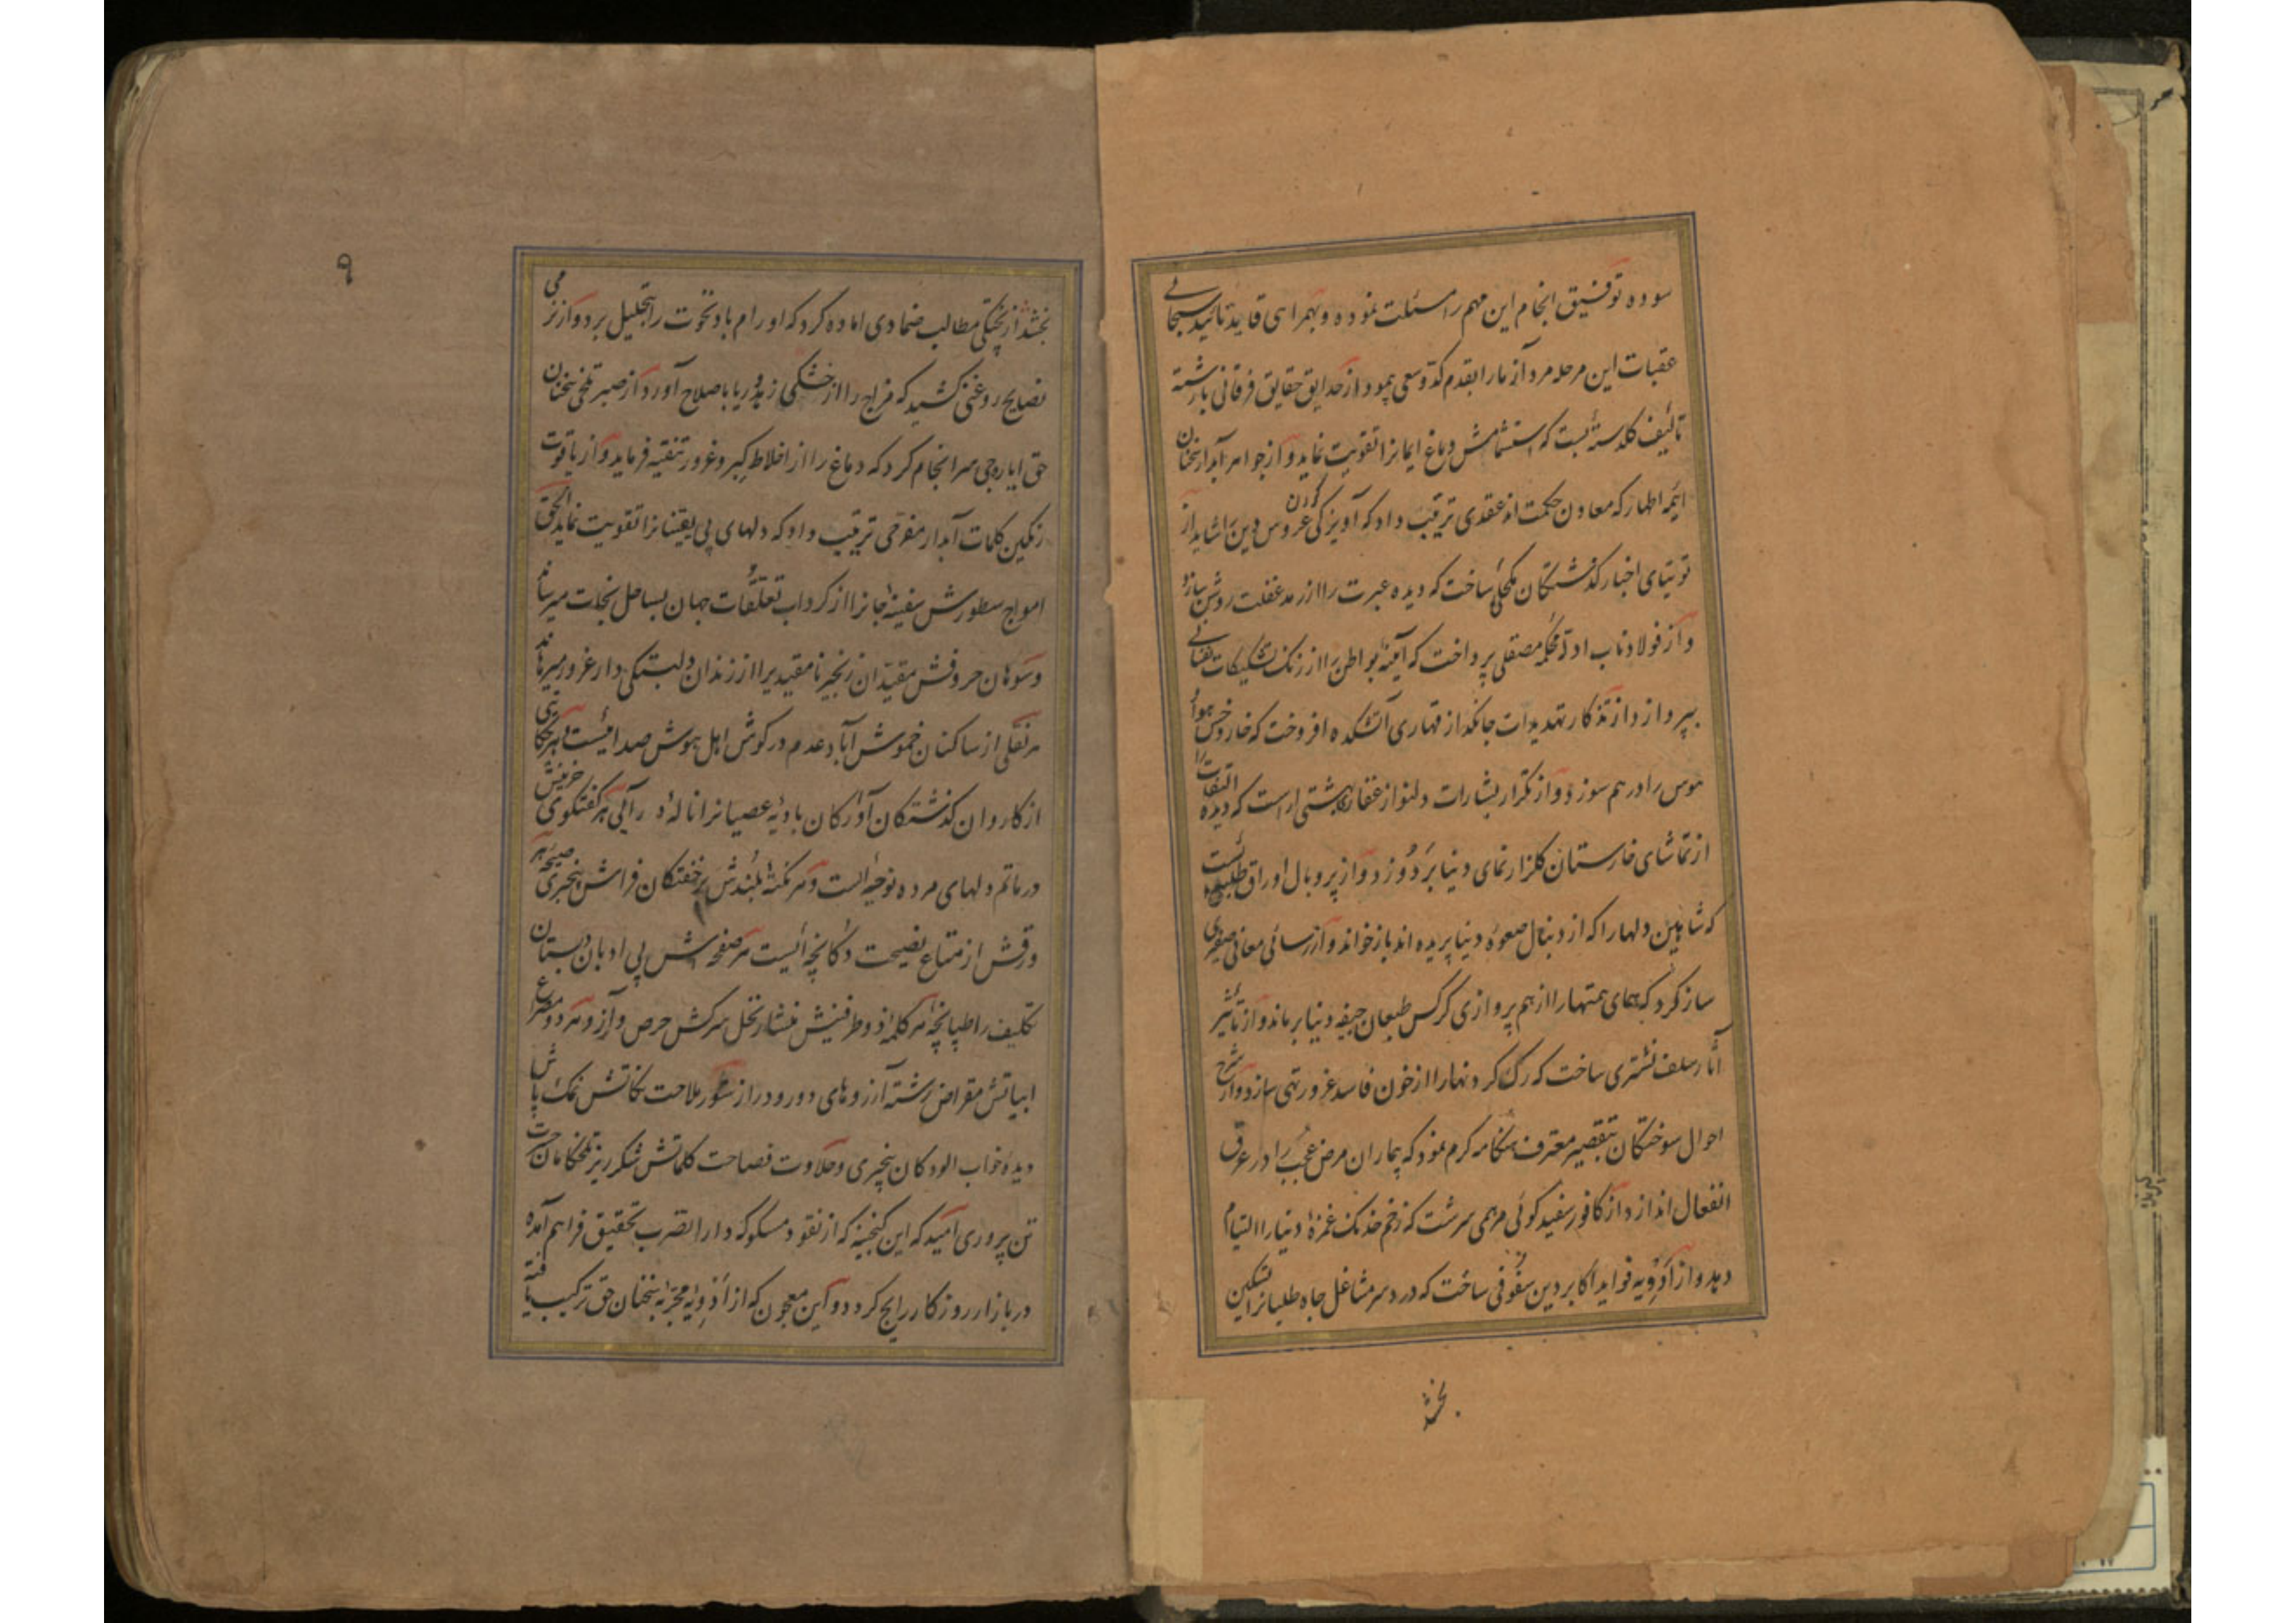 سوده توفیق انجام این مهم را مسئلت نموده و بهمراهی قاید تائید سبحانی
عقبات این مرحله مرد آزما را بقدم کد و سعی پیمود از حدایق حقایق فرقانی بارشته
تألیف کلدسته بست که استشمامش دماغ ایمانرا تقویت نماید و از جواهر آبدار سخنان
ائمه اطهار که معادن حکمت اند عقدی ترتیب داد که آویزکی کردن عروس دین را شاید از
توتیای اخبار کذشتکان مکحلی ساخت که دیده عبرت را از رمد غفلت روشن سازد
و از فولاد ناب ادله محکمه مصقلی پرداخت که آینه بواطن را از زنک تشکیکات نفسانی
بپردازد از تذکار تهدیدات جانکداز قهاری آتشکده افروخت که خار و خس هوا و
هوس را در هم سوزد و از تکرار بشارات دلنواز غفاری بهشتی اراست که دیده التفات را
از تماشای خارستان کلزار نمای دنیا بردوزد و از پر و بال اوراق طلبیده ئست
که شاهین دلها را که از دنبال صعوه دنیا پریده اند باز خواند و از رسائی معانی صفیری
ساز کرد که همای همتها را از هم پروازی کرکس طبعان جیفه دنیا برماند و از تأثیر
آثار سلف نشتری ساخت که رک کردنها را از خون فاسد غرور تهی سازد و از شرح
احوال سوختکان بتقصیر معترف هنکامه کرم نمود که بیماران مرض عجب را در عرق
انفعال اندازد از کافور سفید کوئی مرهمی سرشت که زخم خدنک غمزهٔ دنیا را التیام
دهد و از ادویه فواید اکابر دین سفوفی ساخت که درد سر مشاغل جاه طلبانرا تسکین
بخشد
۹
بخشد از پختکی مطالب ضمادی اماده کرد که اورام باد نخوت را بتحلیل برد و از نرمی
نصایح روغنی کشید که مزاج را از خشکی زهد ریا باصلاح آورد از صبر تلخ سخنان
حق ایارجی سرانجام کرد که دماغ را از اخلاط کبر و غرور تنقیه فرماید و از یاقوت
رنکین کلمات آبدار مفرحی ترتیب داد که دلهای بی یقینانرا تقویت نماید الحق
امواج سطورش سفینهٔ جانرا از کرداب تعلقات جهان بساحل نجات میرساند
و سوهان حروفش مقیدان زنجیر نامقیدیرا از زندان دلبستکی دار غرور میرهاند
هر نقلی از ساکنان خموش آباد عدم در کوش اهل هوش صدائیست و هر حکایتی
از کاروان کذشتکان آوارکان بادیهٔ عصیانرا نالهٔ درائی هر کفتکوی حزینش
در ماتم دلهای مرده نوحه ایست و هر نکتهٔ بلندش بر خفتکان فراش بیخبری صیحه هر
ورقش از متاع نصیحت دکانچه ایست هر صفحه اش بی ادبان دبستان
تکلیف را طپانچه هر کلمهٔ ذو طرفینش منشار نخل سرکش حرص و آز و هر دو مصرع
ابیاتش مقراض رشته آرزوهای دور و دراز شور ملاحت نکاتش نمک پاش
دیدهٔ خواب الودکان بیخبری و حلاوت فصاحت کلماتش شکر ریز تلخکامان حسرت
تن پروری امید که این کنجینه که از نقود مسکوکه دار الضرب تحقیق فراهم آمده
در بازار روزکار رایج کردد و این معجون که از ادویه مجربه سخنان حق ترکیب یافته